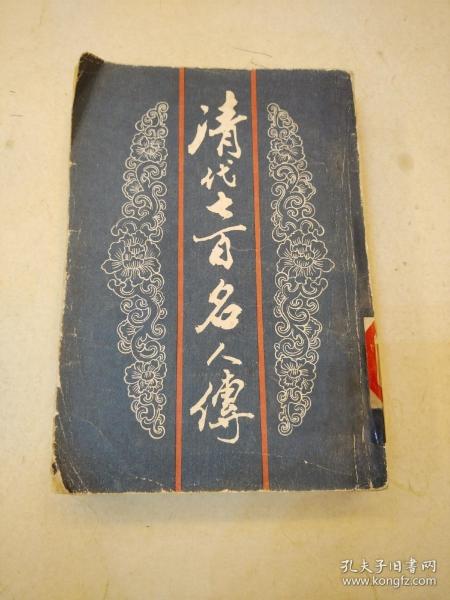 清代七百名人傳
孔夫子旧书网
www.kongfz.com